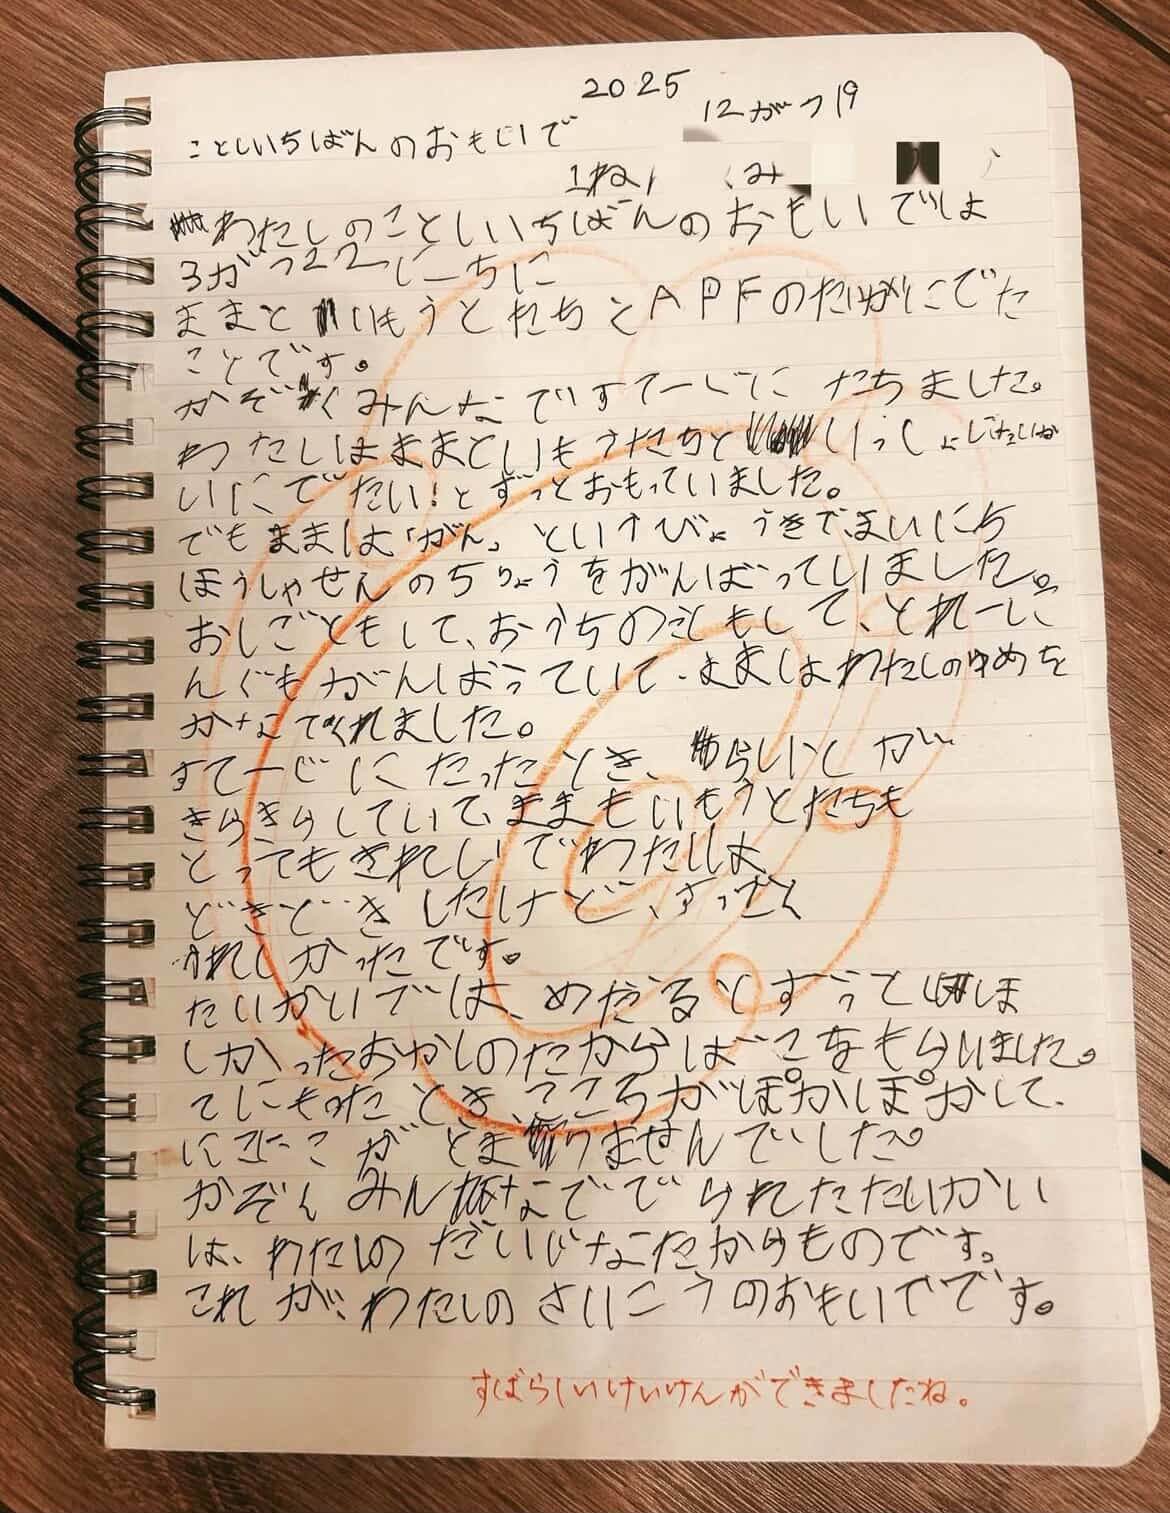 2025
12がつ19
ことしいちばんのおもいで
1ねん くみ
わたしのことしいちばんのおもいでしは
3がつ22にーちに
ままといもうとたちとAPFのたいかいにでた
ことです。
かぞくみんなですてーじにたちました。
わたしはままといもうたちといっしょにたいか
いにでたい!とずっとおもっていました。
でもままは「がん」というびょうきでまいにち
ほうしゃせんのちりょうをがんばっていました。
おしごともして、おうちのこともして、とれーに
んぐもがんばっていて、ままはわたしのゆめを
かなえてくれました。
すてーじにたったとき、らいとが
きらきらしていて、ままもいもうとたちも
とってもきれいでわたしは
どきどきしたけど、すっごく
うれしかったです。
たいかいでは、めだるとずうっとほ
しかったおかしのたからばこをもらいました。
てにもったとき、こころがぽかぽかして、
にこにこがとまりませんでした。
かぞくみんなででられたたいかい
は、わたしのだいじなたからものです。
これが、わたしのさいこうのおもいでです。
すばらしいけいけんができましたね。